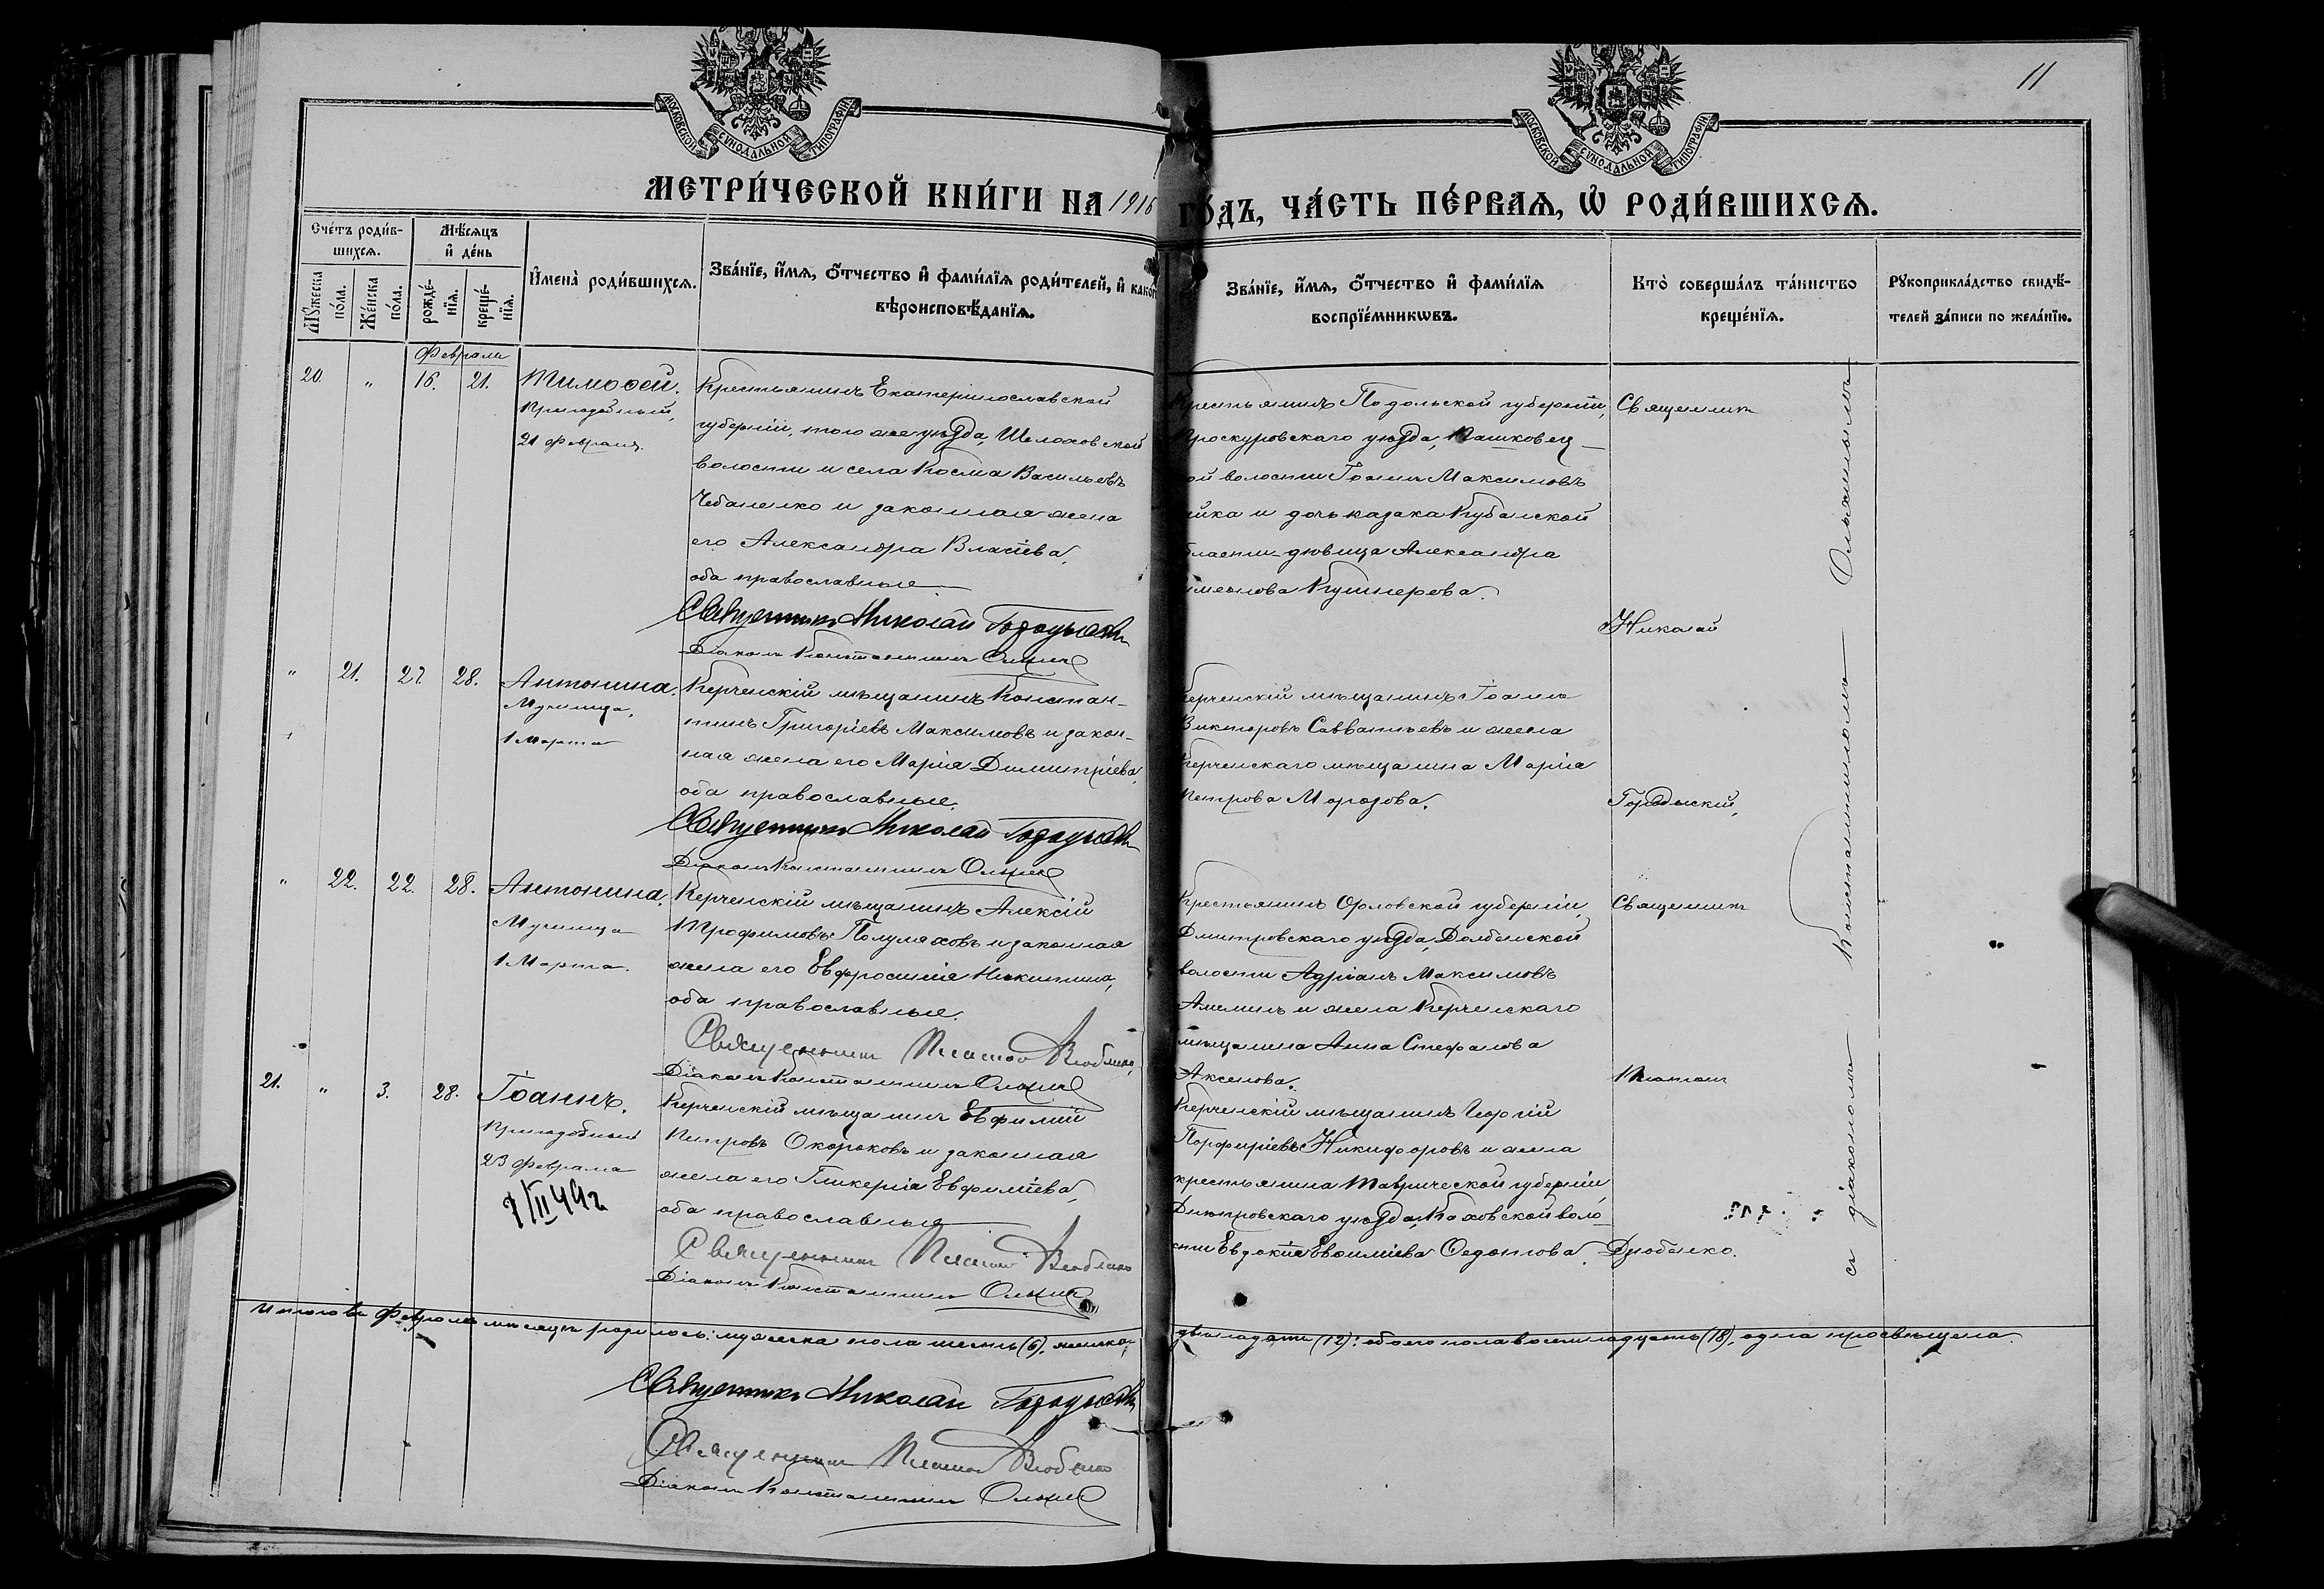 11
МОСКОВСКОЙ СѴНОДАЛЬНОЙ ТИПОГРАФІИ
МОСКОВСКОЙ СѴНОДАЛЬНОЙ ТИПОГРАФІИ
МЕТРИ́ЧЕСКОЙ КНИ́ГИ НА 1916 ГО́ДЪ, ЧА́СТЬ ПЕ́РВАѦ, Ѡ РОДИ́ВШИХСѦ.
Сче́тъ роди́в-
шихсѧ.
Мѣ́сѧцъ
и҆ де́нь
Мꙋжеска
по́ла.
Же́нска
по́ла.
рожде́-
нїѧ.
креще́-
нїѧ.
И҆мена̀ роди́вшихсѧ.
Зва́нїе, и҆́мѧ, ѻ҆́тчество и҆ фами́лїѧ роди́телей, и҆ како́г
вѣроисповѣ́данїѧ.
Зва́нїе, и҆́мѧ, ѻ҆́тчество и҆ фами́лїѧ
воспрїе́мникѡвъ.
Кто̀ соверша́лъ та́инство
креще́нїѧ.
Рꙋкоприкла́дство свидѣ́-
телей за́писи по жела́нїю.
Февраля
20. " 16. 21. Тимоѳей.
Преподобный,
21 Февраля.
Крестьянинъ Екатеринославской
губерніи, того же уѣзда, Шолоховской
волости и села Косма Васильевъ
Чебаненко и законная жена
его Александра Власіева,
оба православные
Священникъ Николай Городыскій
Діаконъ Константинъ
Крестьянинъ Подольской губерніи,
Проскуровскаго уѣзда, Пашковец-
ой волости Іоаннъ Максимовъ
йка и дочь казака Кубанской
бласти дѣвица Александра
имеонова Кушнерова.
Священникъ
Николай
Городыскій,
" 21. 27. 28. Антонина.
Мученица,
1 Марта
Керченскій мѣщанинъ Констан-
тинъ Григоріевъ Максимовъ и закон-
ная жена его Марія Димитріева,
оба православные.
Священникъ Николай Городыскій
Діаконъ Константинъ
Керченскій мѣщанинъ Іоаннъ
Викторовъ Савватьевъ и жена
Керченскаго мѣщанина Марія
Петрова Морозова.
" 22. 22. 28. Антонина.
Мученица
1 Марта.
Керченскій мѣщанинъ Алексій
Трофимовъ Полуляховъ и законная
жена его Евфросинія Никитина,
оба православные.
Священникъ Платонъ Дзюбенко,
Діаконъ Константинъ
Крестьянинъ Орловской губерніи,
Дмитровскаго уѣзда, Долбенской
волости Адріанъ Максимовъ
Анемичъ и жена Керченскаго
мѣщанина Анна Стефанова
Аксенова.
Священникъ
Платонъ
Дзюбенко.
21. " 3. 28. Іоаннъ.
Преподобный
23 Февраля
Керченскій мѣщанинъ Евфимій
Петровъ Окороковъ и законная
жена его Гликерія Евфиміева,
оба православные
Священникъ Платонъ Дзюбенко
Діаконъ Константинъ
Керченскій мѣщанинъ Георгій
Порфиріевъ Никифоровъ и жена
крестьянина Таврической губерніи,
Днѣпровскаго уѣзда, Каховской воло-
сти Евдокія Евѳиміева
съ діакономъ Константиномъ
Итого въ Февралѣ мѣсяцѣ родилось: мужеска пола шесть (6), женска двѣнадцать (12): обоего пола восемнадцать (18), одна просвѣщена.
Священникъ Николай Городыскій
Священникъ Платонъ Дзюбенко
Діаконъ Константинъ